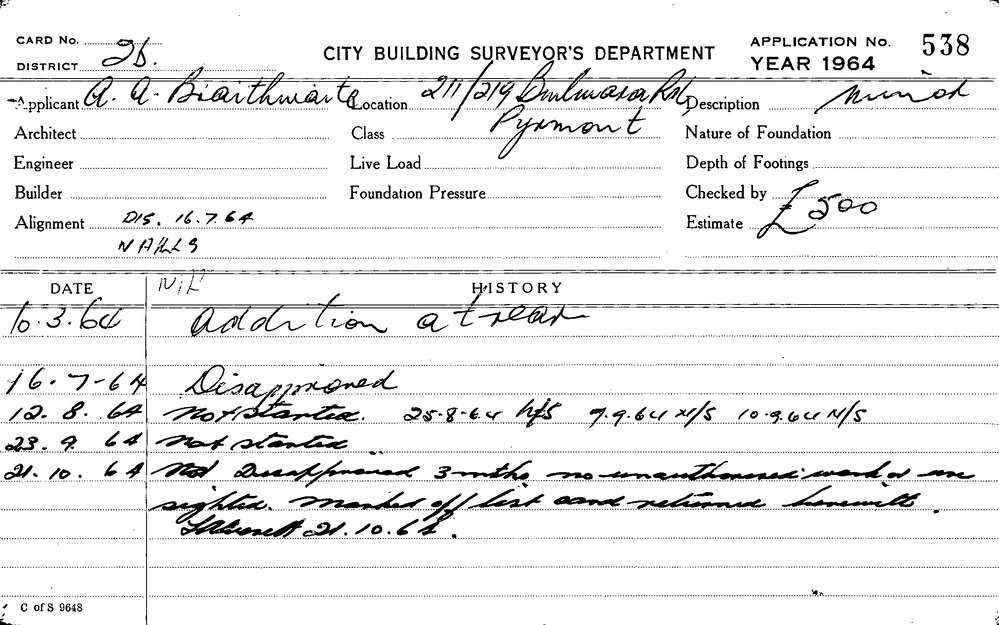 CARD No.
DISTRICT 2b.
CITY BUILDING SURVEYOR'S DEPARTMENT
APPLICATION No. 538
YEAR 1964
Applicant A. A. Braithwaite
Location 211/219 Bulwara Rd, Pyrmont
Description Minor
Architect
Class
Nature of Foundation
Engineer
Live Load
Depth of Footings
Builder
Foundation Pressure
Checked by
Alignment DIS. 16.7.64
Estimate £500
DATE
Nil
HISTORY
6.3.64 addition at rear
16-7-64 Disapproved
12.8.64 Not Started. 25-8-64 N/S 9.9.64 N/S 10.9.64 N/S
23.9.64 Not started
21.10.64 Disapproved 3 mths no unauthorised work or use
sighted. Marked off list card returned herewith.
21.10.64.
C of S 9648